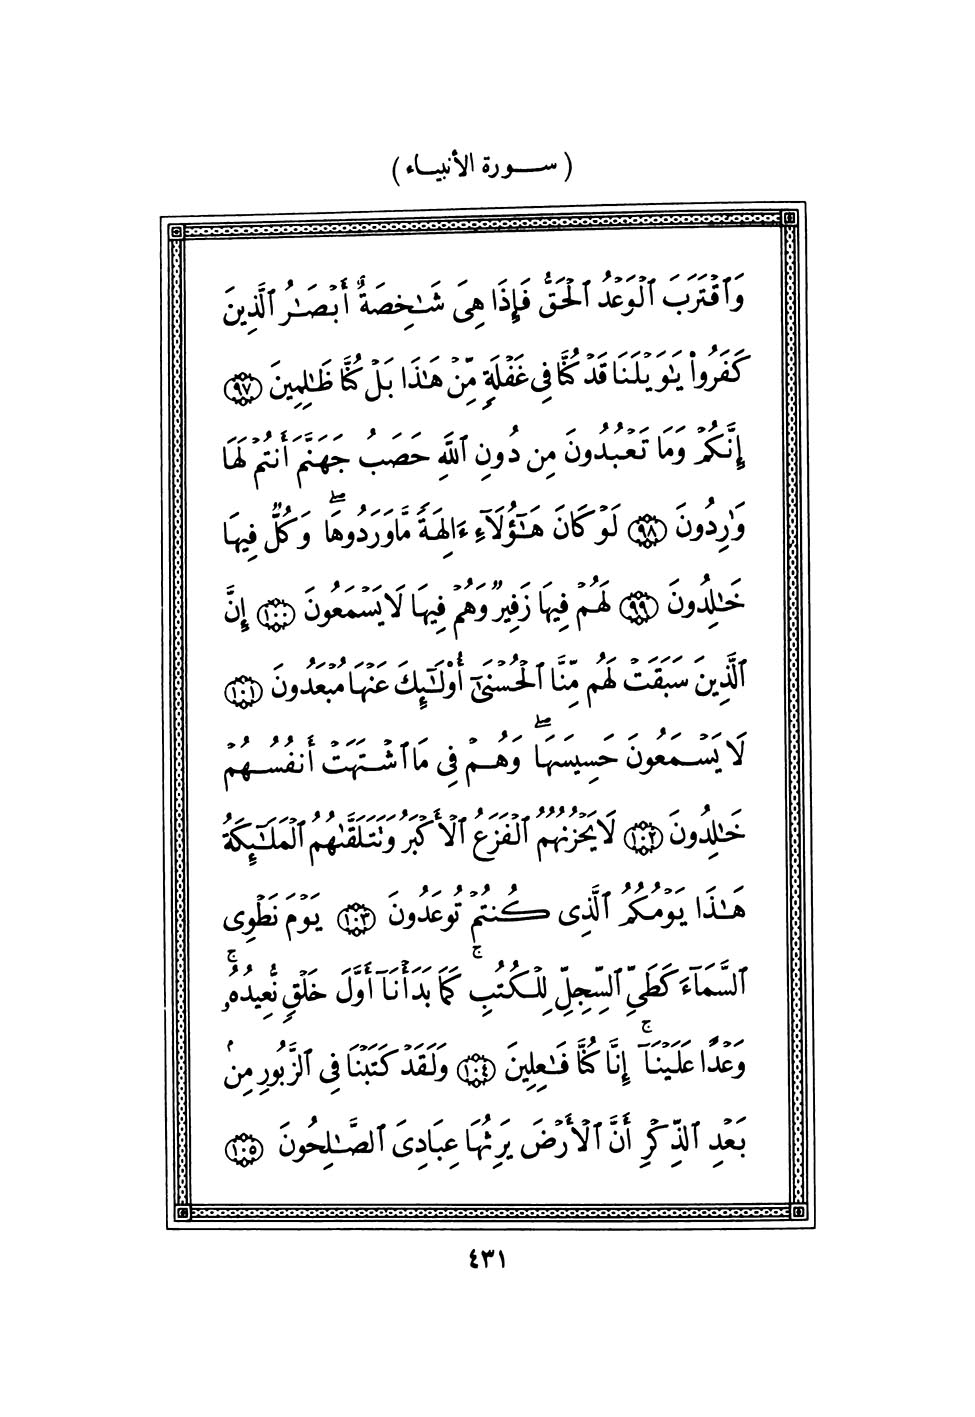 ( ســـورة الأنبيـــاء )
وَٱقْتَرَبَ ٱلْوَعْدُ ٱلْحَقُّ فَإِذَا هِىَ شَـٰخِصَةٌ أَبْصَـٰرُ ٱلَّذِينَ
كَفَرُوا۟ يَـٰوَيْلَنَا قَدْ كُنَّا فِى غَفْلَةٍ مِّنْ هَـٰذَا بَلْ كُنَّا ظَـٰلِمِينَ ٩٧
إِنَّكُمْ وَمَا تَعْبُدُونَ مِن دُونِ ٱللَّهِ حَصَبُ جَهَنَّمَ أَنتُمْ لَهَا
وَٰرِدُونَ ٩٨ لَوْ كَانَ هَـٰٓؤُلَآءِ ءَالِهَةً مَّا وَرَدُوهَا ۖ وَكُلٌّ فِيهَا
خَـٰلِدُونَ ٩٩ لَهُمْ فِيهَا زَفِيرٌ وَهُمْ فِيهَا لَا يَسْمَعُونَ ١٠٠ إِنَّ
ٱلَّذِينَ سَبَقَتْ لَهُم مِّنَّا ٱلْحُسْنَىٰٓ أُو۟لَـٰٓئِكَ عَنْهَا مُبْعَدُونَ ١٠١
لَا يَسْمَعُونَ حَسِيسَهَا ۖ وَهُمْ فِى مَا ٱشْتَهَتْ أَنفُسُهُمْ
خَـٰلِدُونَ ١٠٢ لَا يَحْزُنُهُمُ ٱلْفَزَعُ ٱلْأَكْبَرُ وَتَتَلَقَّىٰهُمُ ٱلْمَلَـٰٓئِكَةُ
هَـٰذَا يَوْمُكُمُ ٱلَّذِى كُنتُمْ تُوعَدُونَ ١٠٣ يَوْمَ نَطْوِى
ٱلسَّمَآءَ كَطَىِّ ٱلسِّجِلِّ لِلْكُتُبِ ۚ كَمَا بَدَأْنَآ أَوَّلَ خَلْقٍ نُّعِيدُهُۥ ۚ
وَعْدًا عَلَيْنَآ ۚ إِنَّا كُنَّا فَـٰعِلِينَ ١٠٤ وَلَقَدْ كَتَبْنَا فِى ٱلزَّبُورِ مِنۢ
بَعْدِ ٱلذِّكْرِ أَنَّ ٱلْأَرْضَ يَرِثُهَا عِبَادِىَ ٱلصَّـٰلِحُونَ ١٠٥
٤٣١